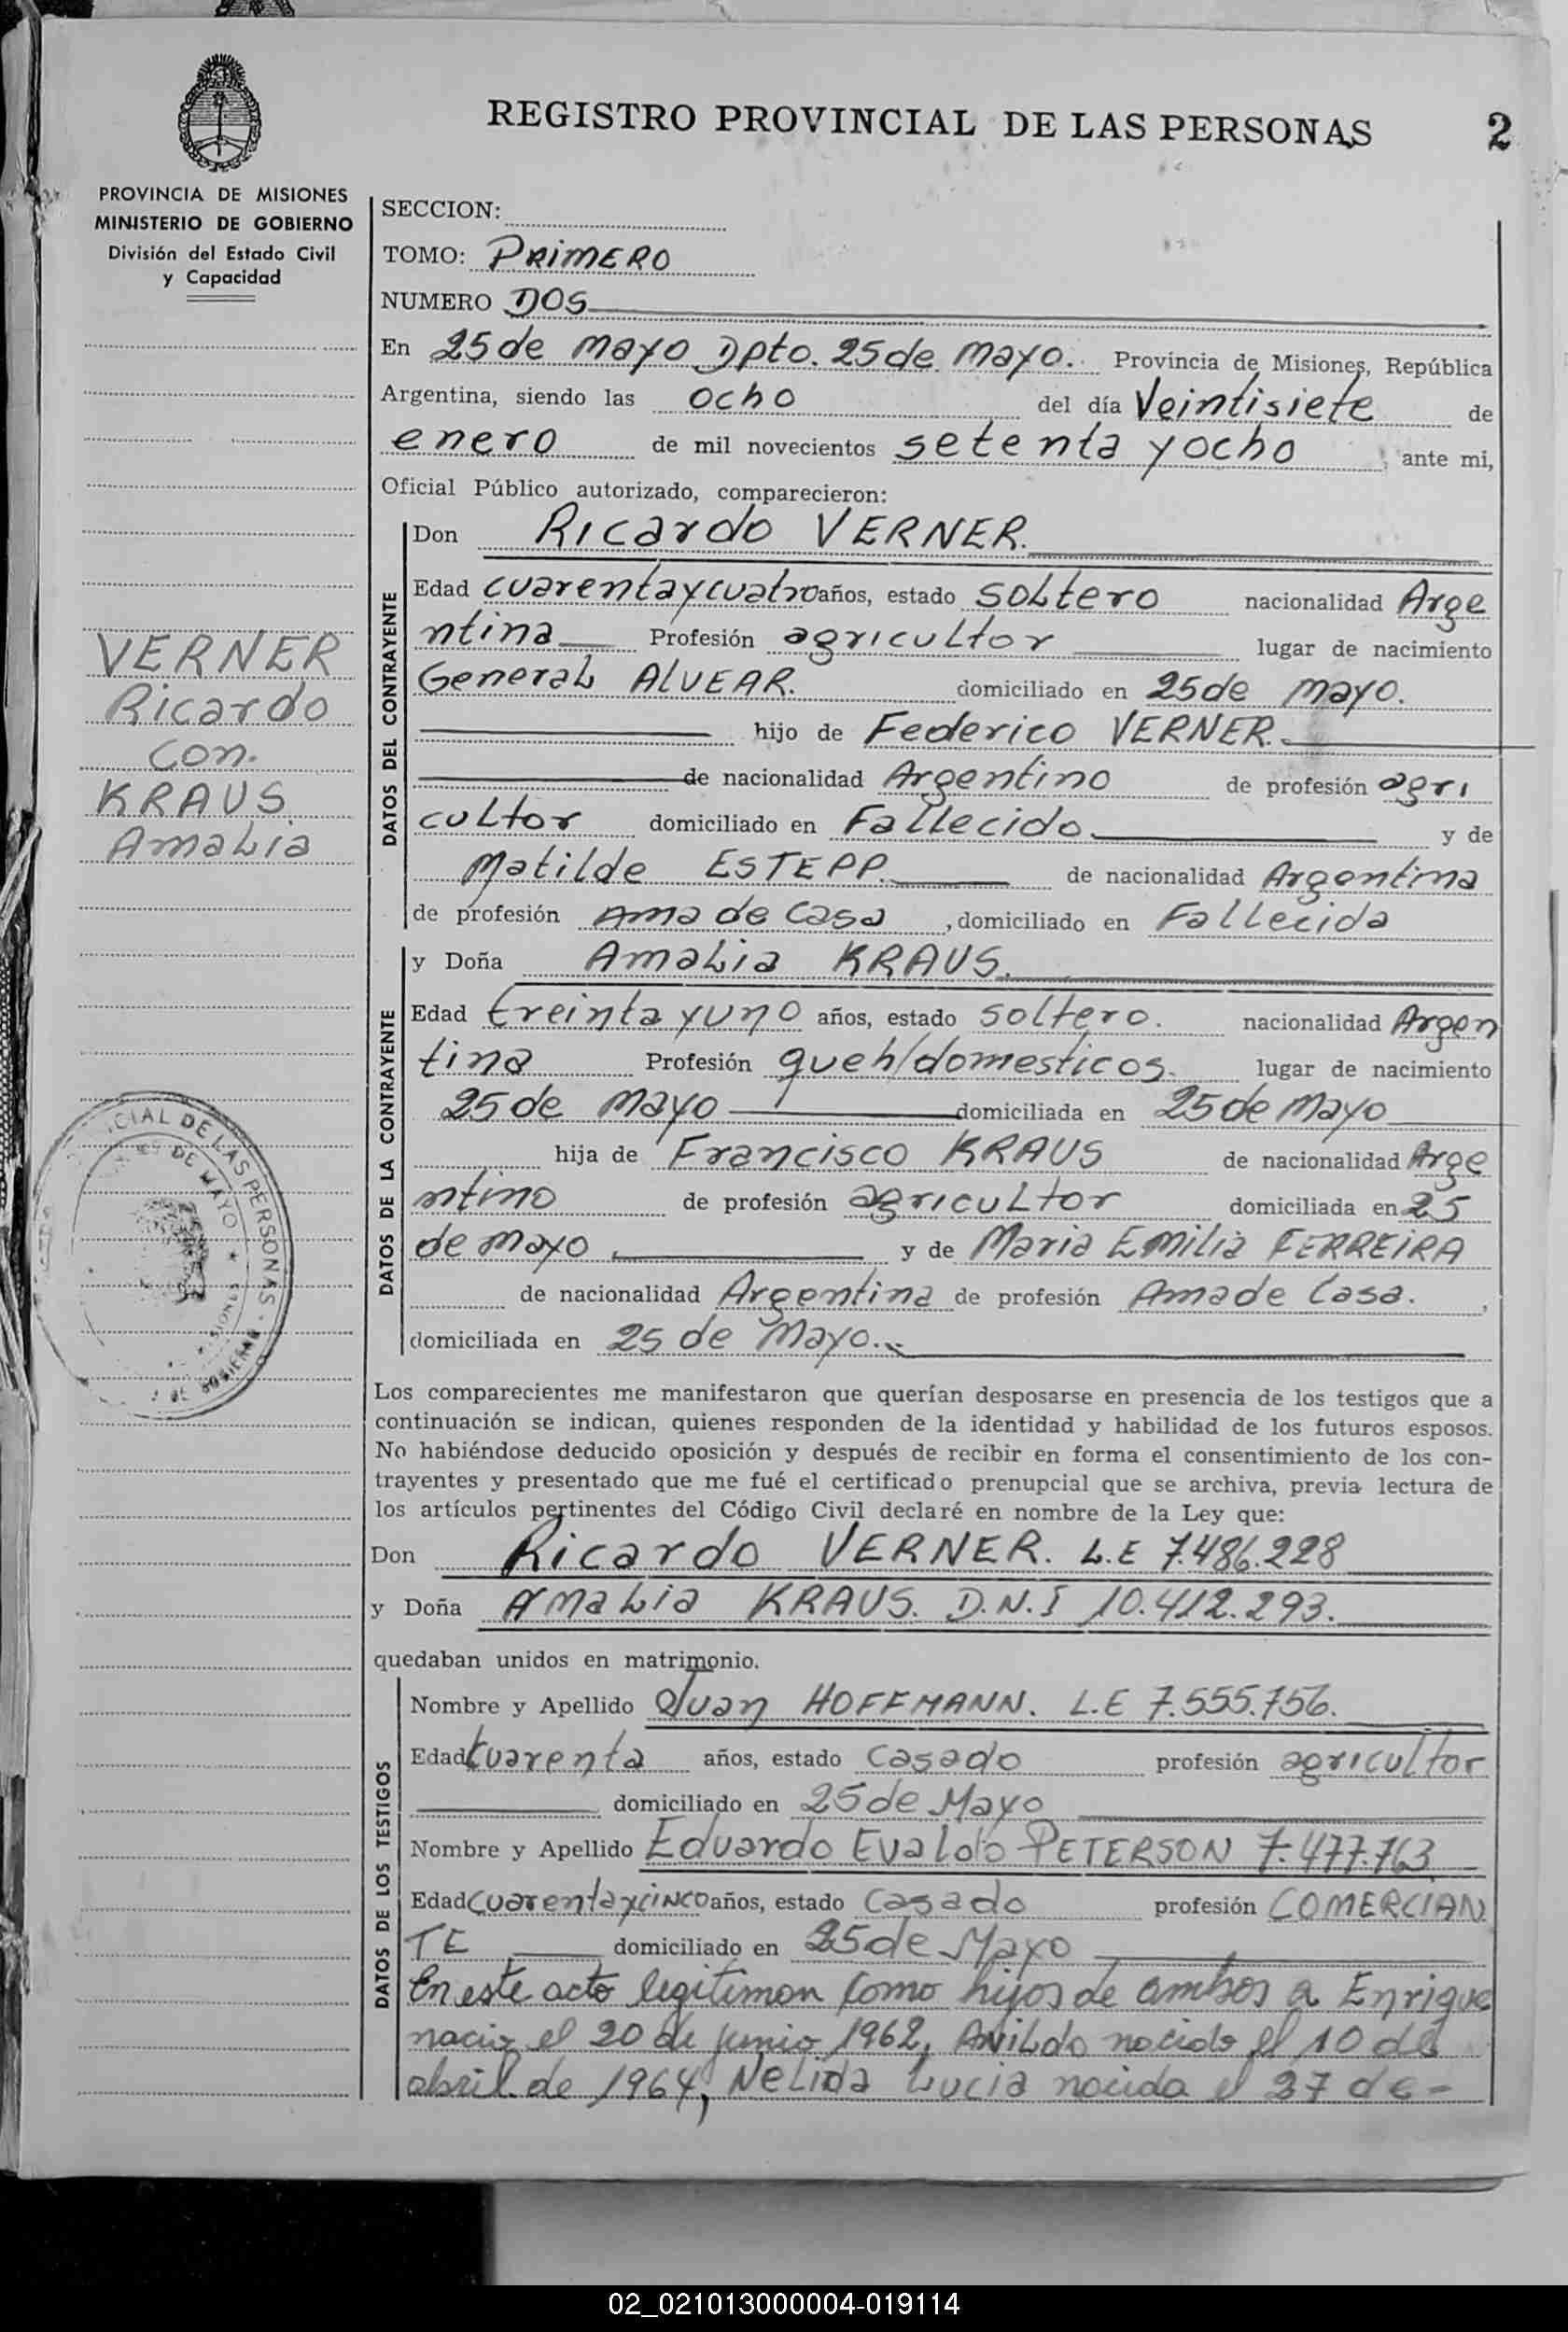 REGISTRO PROVINCIAL DE LAS PERSONAS 2
PROVINCIA DE MISIONES
MINISTERIO DE GOBIERNO
División del Estado Civil
y Capacidad
SECCION:
TOMO: PRIMERO
NUMERO DOS
En 25 de mayo Dpto. 25 de mayo. Provincia de Misiones, República
Argentina, siendo las ocho del día Veintisiete de
enero de mil novecientos setenta y ocho, ante mi,
Oficial Público autorizado, comparecieron:
DATOS DEL CONTRAYENTE
Don Ricardo VERNER.
Edad cuarenta y cuatro años, estado soltero nacionalidad Arge
ntina Profesión agricultor lugar de nacimiento
General ALVEAR. domiciliado en 25 de mayo.
hijo de Federico VERNER.
de nacionalidad Argentino de profesión agri
cultor domiciliado en Fallecido y de
Matilde ESTEPP. de nacionalidad Argentina
de profesión Ama de Casa, domiciliado en Fallecida
VERNER
Ricardo
con.
KRAUS
Amalia
DATOS DE LA CONTRAYENTE
y Doña Amalia KRAUS.
Edad treinta y uno años, estado soltero. nacionalidad Argen
tina Profesión queh/domesticos. lugar de nacimiento
25 de mayo domiciliada en 25 de mayo
hija de Francisco KRAUS de nacionalidad Arge
ntino de profesión agricultor domiciliada en 25
de mayo, y de Maria Emilia FERREIRA
de nacionalidad Argentina de profesión Ama de Casa.,
domiciliada en 25 de Mayo.
CIAL DE LAS PERSONAS
DE MAYO
SIONES
Los comparecientes me manifestaron que querían desposarse en presencia de los testigos que a
continuación se indican, quienes responden de la identidad y habilidad de los futuros esposos.
No habiéndose deducido oposición y después de recibir en forma el consentimiento de los con-
trayentes y presentado que me fué el certificado prenupcial que se archiva, previa lectura de
los artículos pertinentes del Código Civil declaré en nombre de la Ley que:
Don Ricardo VERNER. L.E 7.486.228
y Doña Amalia KRAUS. D.N.I 10.412.293.
quedaban unidos en matrimonio.
DATOS DE LOS TESTIGOS
Nombre y Apellido Juan HOFFMANN. L.E 7.555.756.
Edad cuarenta años, estado casado profesión agricultor
domiciliado en 25 de Mayo
Nombre y Apellido Eduardo Evaldo PETERSON 7.477.763
Edad cuarenta y cinco años, estado casado profesión COMERCIAN
TE domiciliado en 25 de Mayo
En este acto legitiman como hijos de ambos a Enrique
nacio el 20 de junio 1962, Anildo nacido el 10 de
abril de 1964, Nelida Lucia nacida el 27 de-
02_021013000004-019114